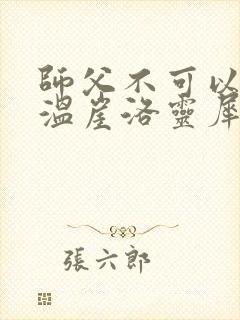 師父不可以
溫崖洛靈犀
張六郎